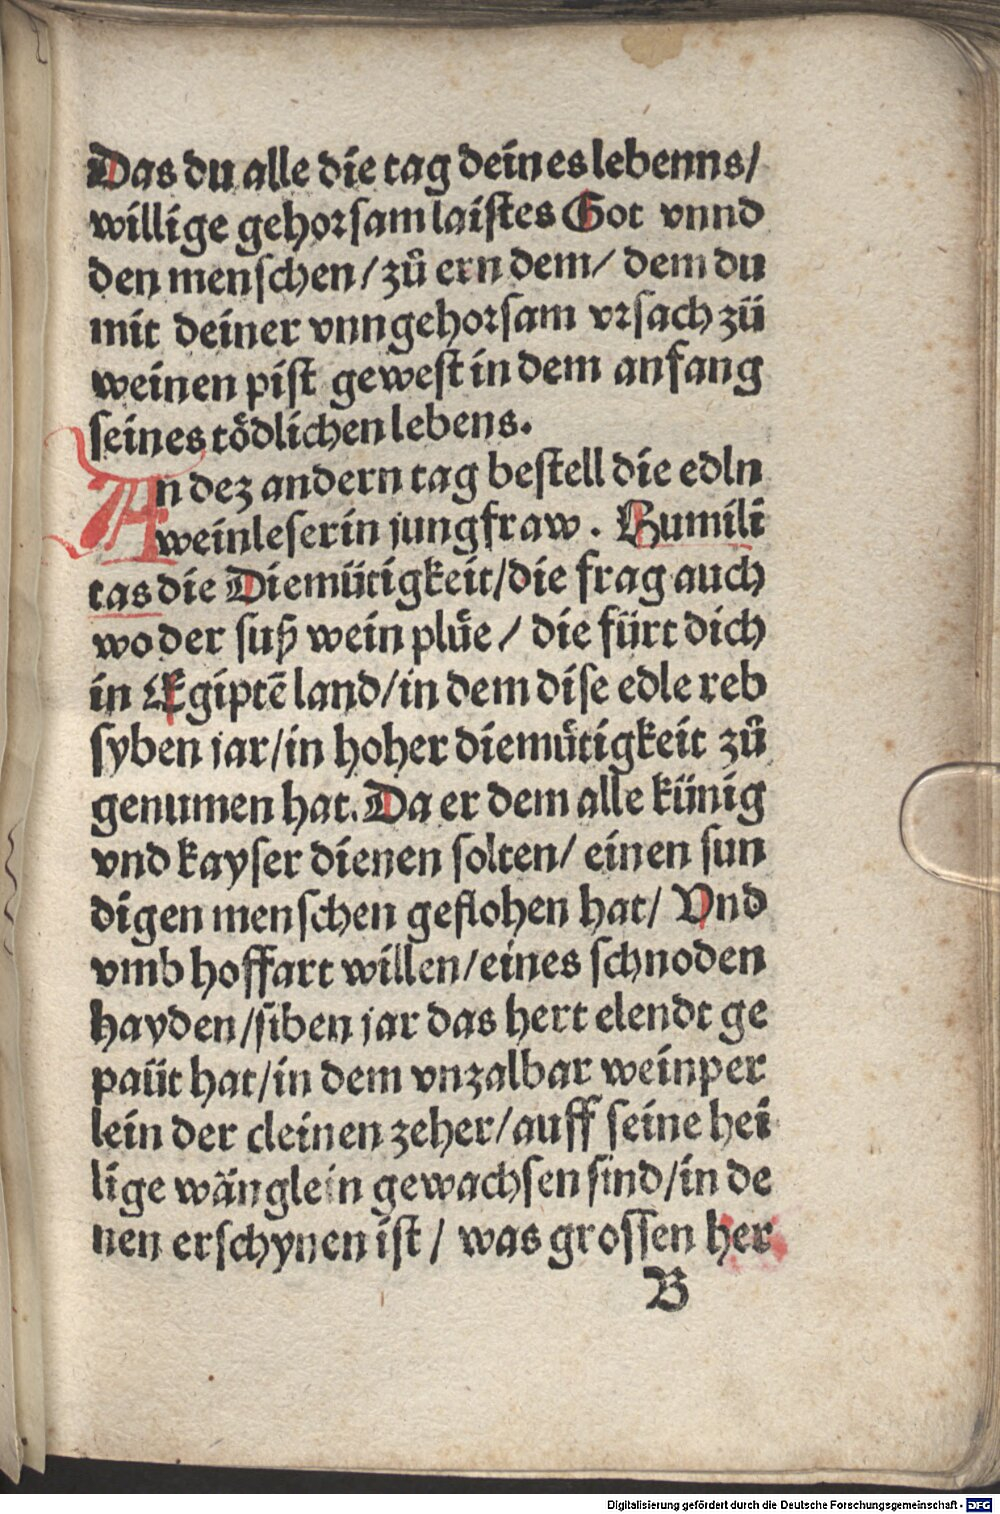 Das du alle die tag deines lebenns/
willige gehorsam laistes Got vnnd
den menschen/ zů ern dem/ dem du
mit deiner vnngehorsam vrsach zü
weinen pist gewest in dem anfang
seines tödlichen lebens.
An dez andern tag bestell die edln
weinleserin jungfraw. Humili
tas die Diemütigkeit/die frag auch
wo der suß wein plüe/ die fürt dich
in Egiptē land/in dem dise edle reb
syben jar/in hoher diemütigkeit zů
genumen hat. Da er dem alle künig
vnd kayser dienen solten/ einen sun
digen menschen geflohen hat/ Vnd
vmb hoffart willen/eines schnoden
hayden/siben jar das hert elendt ge
paüt hat/in dem vnzalbar weinper
lein der cleinen zeher/auff seine hei
lige wänglein gewachsen sind/in de
nen erschynen ist/ was grossen her
B
Digitalisierung gefördert durch die Deutsche Forschungsgemeinschaft - DFG